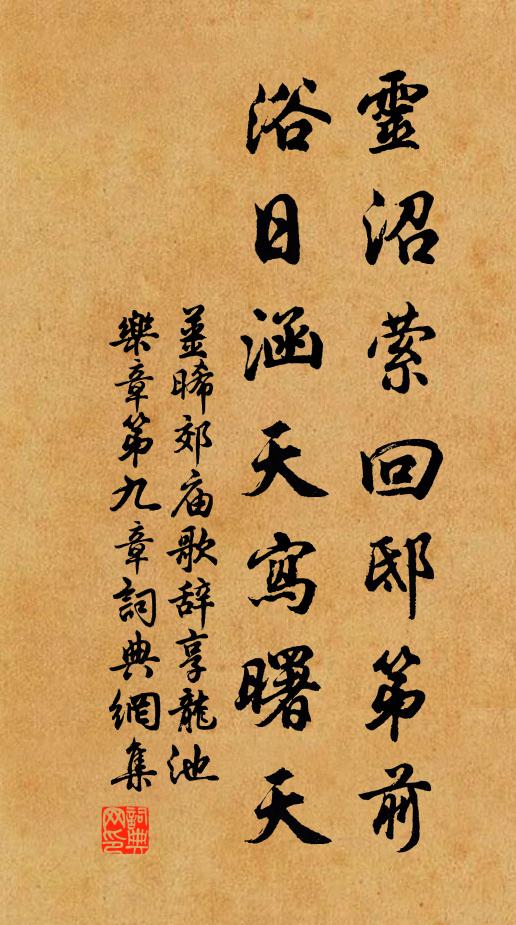 靈沼萦回邸第前
浴日涵天寫曙天
薑晞郊庙歌辞享龍池
樂章第九章詞典網集
詞典网印